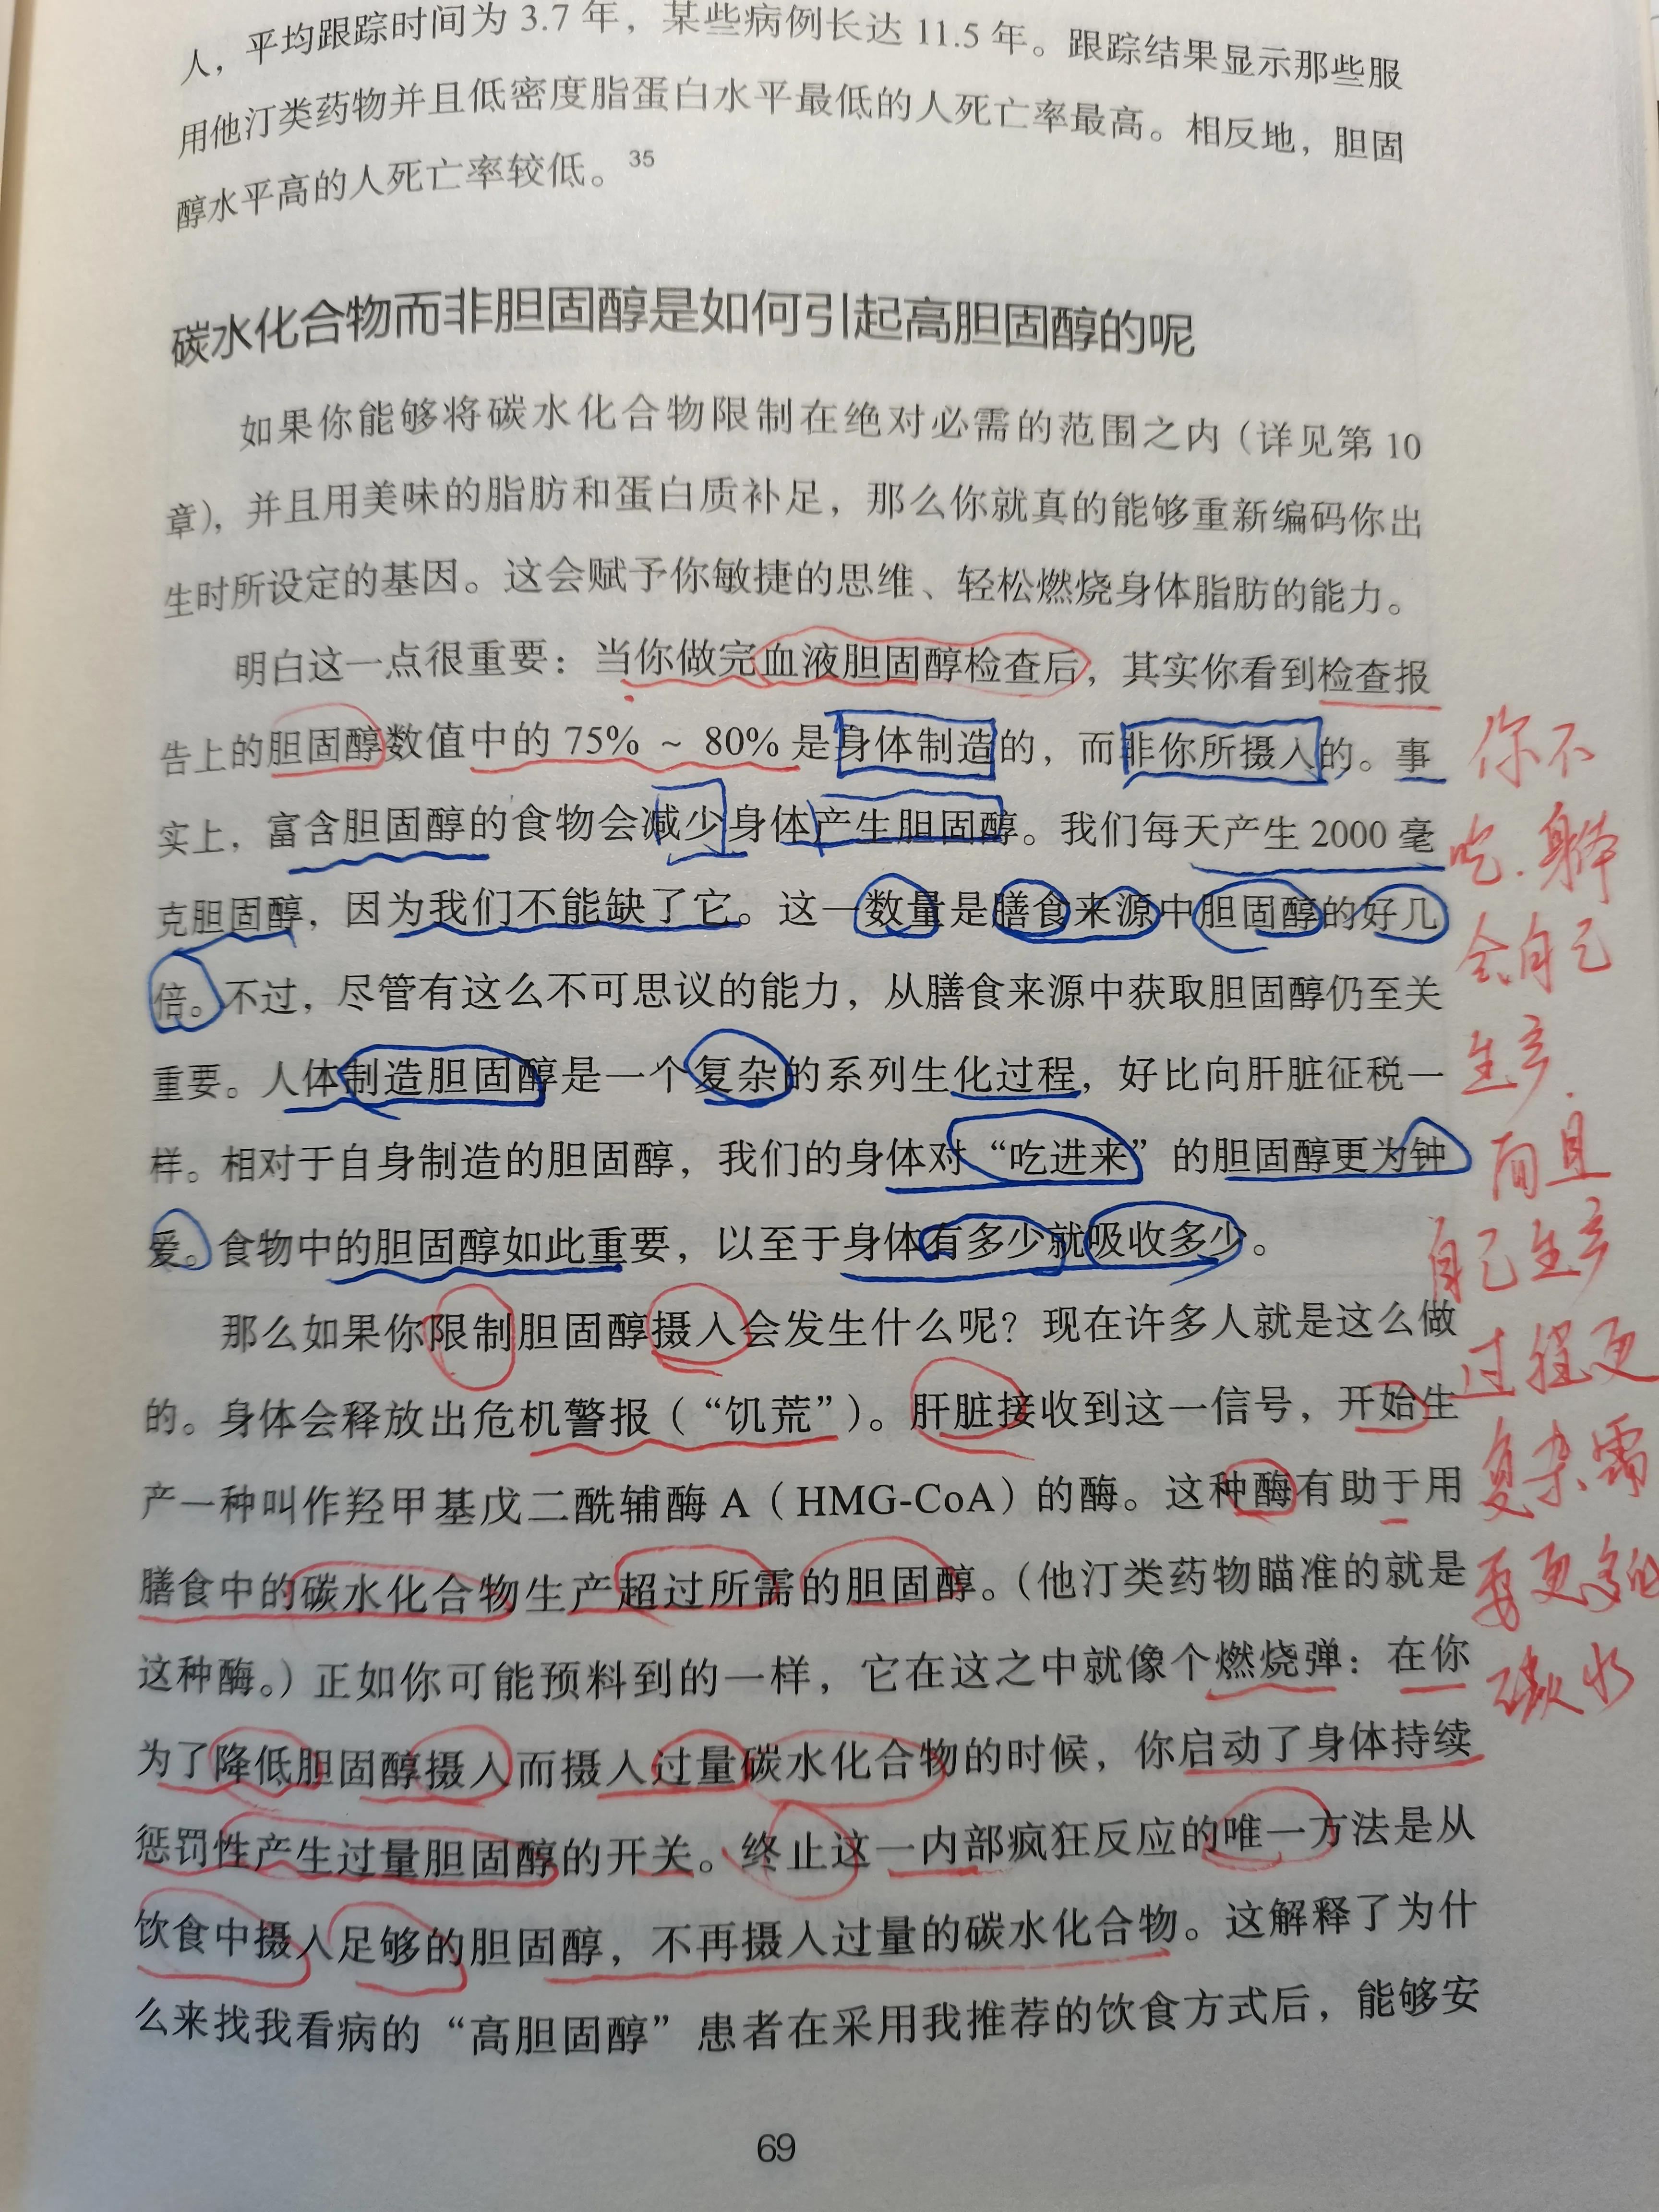 人，平均跟踪时间为 3.7 年，某些病例长达 11.5 年。跟踪结果显示那些服
用他汀类药物并且低密度脂蛋白水平最低的人死亡率最高。相反地，胆固
醇水平高的人死亡率较低。35
碳水化合物而非胆固醇是如何引起高胆固醇的呢
如果你能够将碳水化合物限制在绝对必需的范围之内（详见第 10
章），并且用美味的脂肪和蛋白质补足，那么你就真的能够重新编码你出
生时所设定的基因。这会赋予你敏捷的思维、轻松燃烧身体脂肪的能力。
明白这一点很重要：当你做完血液胆固醇检查后，其实你看到检查报
告上的胆固醇数值中的 75% ~ 80% 是身体制造的，而非你所摄入的。事
实上，富含胆固醇的食物会减少身体产生胆固醇。我们每天产生 2000 毫
克胆固醇，因为我们不能缺了它。这一数量是膳食来源中胆固醇的好几
倍。不过，尽管有这么不可思议的能力，从膳食来源中获取胆固醇仍至关
重要。人体制造胆固醇是一个复杂的系列生化过程，好比向肝脏征税一
样。相对于自身制造的胆固醇，我们的身体对“吃进来”的胆固醇更为钟
爱。食物中的胆固醇如此重要，以至于身体有多少就吸收多少。
那么如果你限制胆固醇摄入会发生什么呢？现在许多人就是这么做
的。身体会释放出危机警报（“饥荒”）。肝脏接收到这一信号，开始生
产一种叫作羟甲基戊二酰辅酶 A（HMG-CoA）的酶。这种酶有助于用
膳食中的碳水化合物生产超过所需的胆固醇。（他汀类药物瞄准的就是
这种酶。）正如你可能预料到的一样，它在这之中就像个燃烧弹：在你
为了降低胆固醇摄入而摄入过量碳水化合物的时候，你启动了身体持续
惩罚性产生过量胆固醇的开关。终止这一内部疯狂反应的唯一方法是从
饮食中摄入足够的胆固醇，不再摄入过量的碳水化合物。这解释了为什
么来找我看病的“高胆固醇”患者在采用我推荐的饮食方式后，能够安
69
你不
吃.身体
会自己
生产.
而且
自己生产
过程更
复杂需
要更多的
碳水